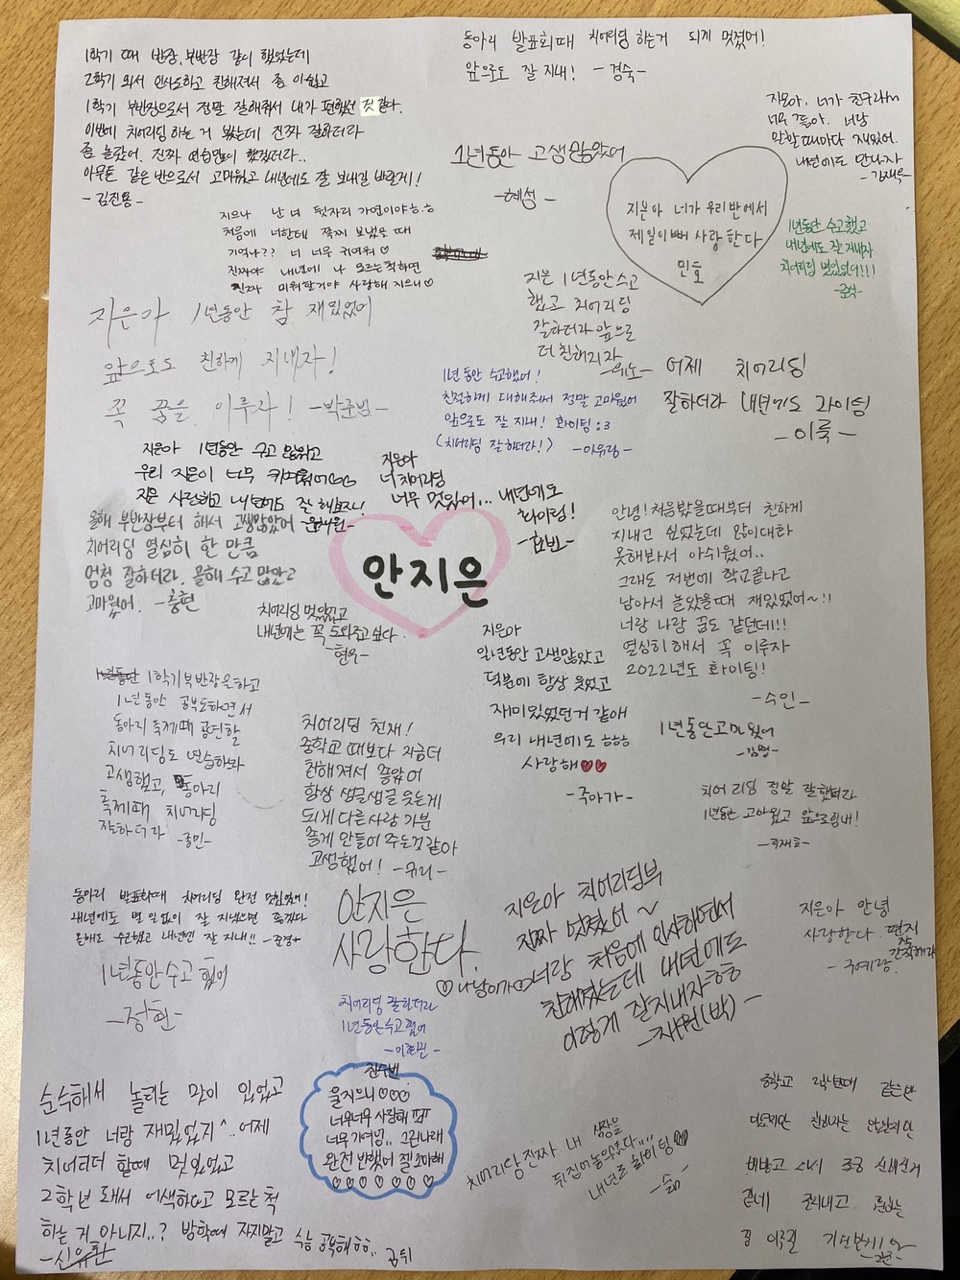 1학기 때 반장, 부반장 같이 했었는데
2학기 와서 인사도하고 친해져서 좀 아쉽고
1학기 부반장으로서 정말 잘해줘서 내가 편했던 것 같다.
이번에 치어리딩 하는 거 봤는데 진짜 잘하더라
좀 놀랐어. 진짜 연습많이 했겠더라..
아무튼 같은 반으로서 고마웠고 내년에도 잘 보내길 바랄게!
-김진용-
동아리 발표회때 치어리딩 하는거 되게 멋졌어!
앞으로도 잘 지내! -경숙-
지은아, 너가 친구라서
너무 좋아. 너랑
말할때마다 재밌어.
내년에도 만나자
1년동아 고생 많았어
-혜성-
지은아 너가 우리반에서
제일이뻐 사랑한다
민호
1년동안 수고했고
내년에도 잘 지내자
치어리딩 멋있었어!!!
지으니 난 너 뒷자리 가연이야ㅎ.ㅎ
처음에 너한테 쪽지 보냈을 때
기억나?? 너 너무 귀여워♡
진짜야 내년에 나 모르는척하면
진짜 미워할거야 사랑해 지으니♡
지은아 1년동안 참 재밌었어
앞으로도 친하게 지내자!
꼭 꿈을 이루자! -박준범-
지은 1년동안수고
했고 치어리딩
잘하더라 앞으로
더 친해지자
1년동안 수고했어!
친절하게 대해줘서 정말 고마웠어
앞으로도 잘 지내! 화이팅 :3
(치어리딩 잘하더라!)
어제 치어리딩
잘하더라 내년에도 화이팅
-이룩-
지은아 1년동안 수고 많았고
우리 지은이 너무 귀여웠어
지은 사랑하고 내년에도 잘 해보자!
지은아
너 치어리딩
너무 멋있어... 내년에도
화이팅!
올해 부반장부터 해서 고생많았어
치어리딩 열심히 한 만큼
엄청 잘하더라. 올해 수고 많았고
고마웠어. -홍현
안지은
치어리딩 멋있었고
내년에는 꼭 도와주고 싶다.
-현우-
안녕! 처음봤을때부터 친하게
지내고 싶었는데 많이대화
못해봐서 아쉬웠어..
그래도 저번에 학교끝나고
남아서 놀았을때 재밌었어~!!
너랑 나랑 꿈도 같던데!!
열심히해서 꼭 이루자
2022년도 화이팅!!
-수인-
지은아
일년동안 고생많았고
덕분에 항상 웃었고
재미있었던거 같애
우리 내년에도 ㅎㅎㅎ
사랑해♥♥
-주아가-
1학기부반장을 하고
1년동안 공부도하면서
동아리 축제때 공연할
치어리딩도 연습하랴
고생했고, 동아리
축제때 치어리딩
잘하더라
치어리딩 천재!
중학교 때보다 지금더
친해져서 좋았어
항상 생글생글 웃는게
되게 다른사람 기분
좋게 만들어 주는것같아
고생했어! -규리-
1년동안고마웠어
치어리딩 정말 잘했더라
1년동안 고마웠고 앞으로힘내!
동아리 발표회때 치어리딩 완전 멋있었어!
내년에도 별 일 없이 잘 지냈으면 좋겠다
올해도 수고했고 내년엔 잘 지내!!
1년동안수고 했어
-정현-
안지은
사랑한다.
지은아 치어리딩부
진짜 멋졌어~
너랑 처음에 인사하면서
친해졌는데 내년에도
이렇게 잘지내자ㅎㅎ
-채원(박)-
지은아 안녕
사랑한다. 편지
잘
간직해라
-주예랑.
치어리딩 잘하더라
1년동안수고했어
울지으니♡♡♡
너무너무 사랑해
너무 귀여님.. 그린나래
완전 반했어 젤소아해
♡♡♡♡♡♡♡
순수해서 놀리는 맛이 있었고
1년동안 너랑 재밌었지^..어제
치어리더 할때 멋있었고
2학년 돼서 어색하다고 모르는척
하는 거 아니지..? 방학때 자지말고 수능 공부해ㅎㅎ..
치어리딩 진짜 내 심장을
뒤집어놓으셨다....
내년도 화이팅♡